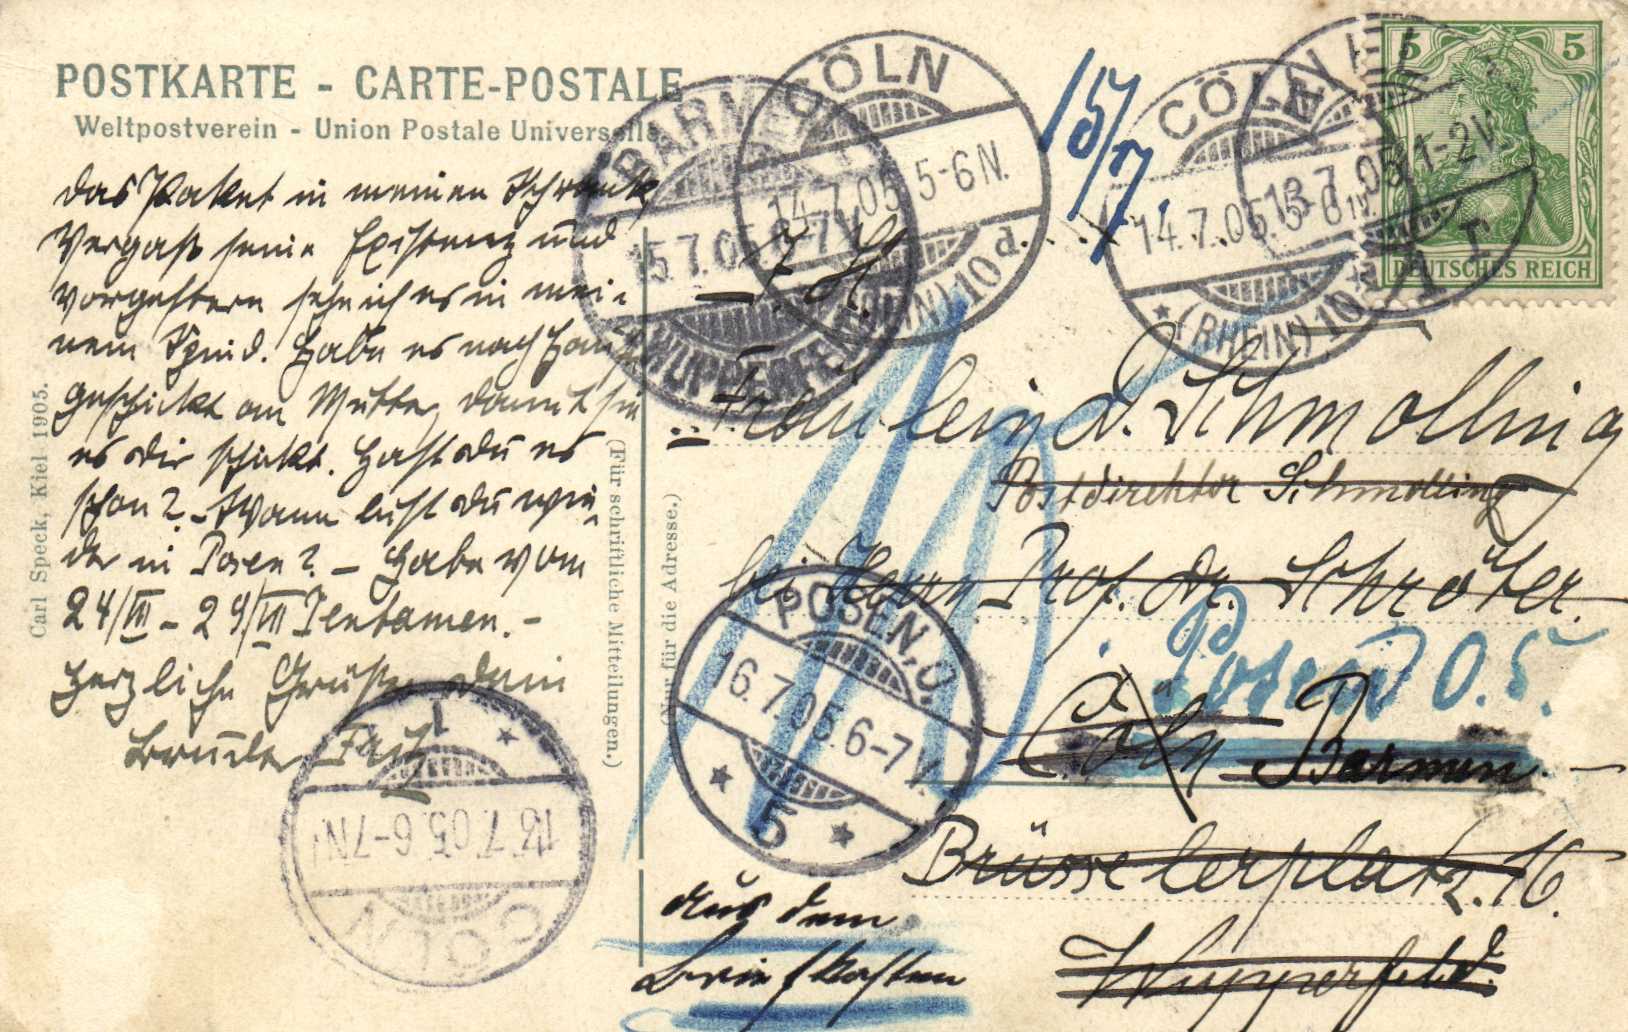 POSTKARTE - CARTE-POSTALE
Weltpostverein - Union Postale Universelle
das Paket in meinen Schrank,
vergaß seine Existenz und
vorgestern seh ich es in mei-
nem Spind. Habe es nach Hause
geschickt an Mutter, damit sie
es dir schickt. Hast du es
schon? - Wann bist du wie-
der in Posen? - Habe vom
24/VII - 29/VII Tentamen. -
Herzliche Grüße dein
Bruder Fritz
Carl Speck, Kiel 1905.
(Für schriftliche Mitteilungen.)
(Nur für die Adresse.)
BARMEN
15.7.05. 6-7V
WUPPERFELD
CÖLN
14.7.05. 5-6N.
(RHEIN) 10 d.
15/7.
CÖLN
14.7.05. 5-6N.
(RHEIN) 10
KIEL
13.7.05. 11-2V.
1 r
5 5
DEUTSCHES REICH
Fräulein D. Schmolling
Postdirektor Schmolling
bei Herrn Prof. Dr. Schröter.
Posen O. 5.
Cöln Barmen
Brüsselerplatz. 16.
Wupperfeld.
POSEN, O.
16.7.05. 6-7V.
5
CÖLN
13.7.05. 6-7N.
1
aus dem
Briefkasten